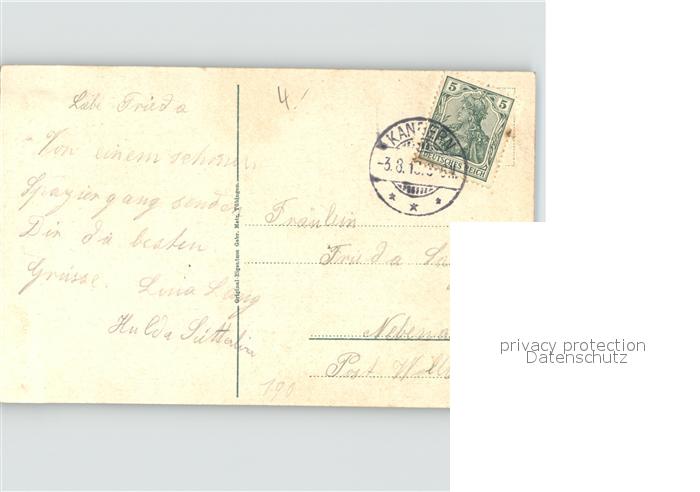 Liebe Frieda
Von einem schönen
Spaziergang sendet
Dir die besten
Grüsse. Lina Lang
Hulda Sütterlin
Original-Eigentum Gebr. Metz, Tübingen.
4.
5 5
DEUTSCHES REICH
KANDERN
-3.8.13.
Fräulein
Frieda
Nebenau
Post Woll
190
privacy protection
Datenschutz